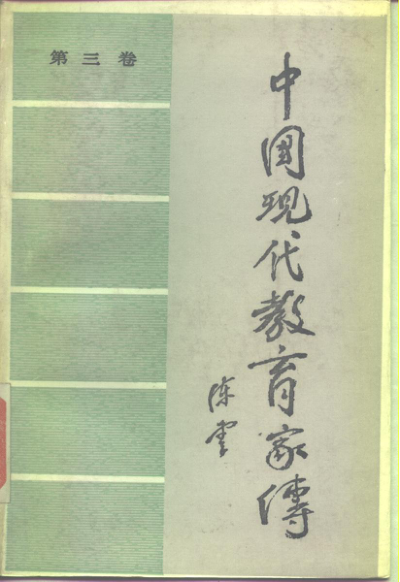 第三卷
中國现代教育家傳
陈雲